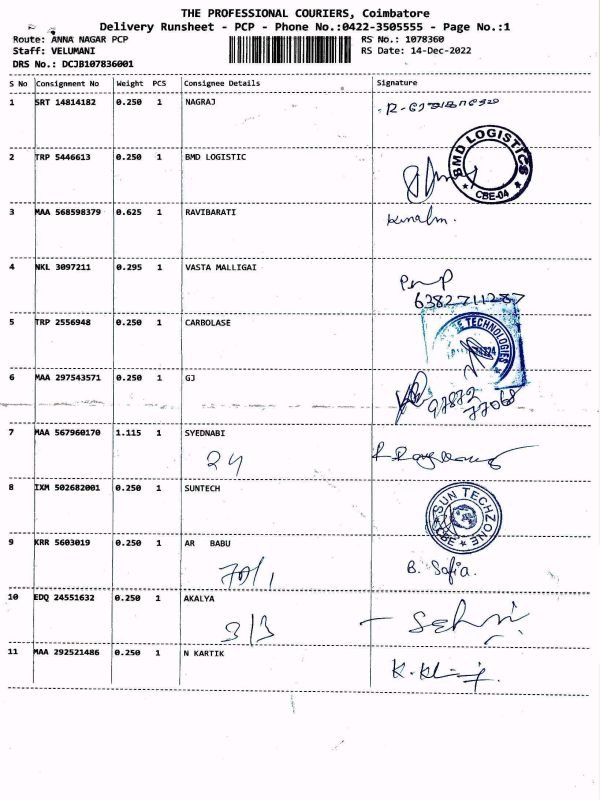 THE PROFESSIONAL COURIERS, Coimbatore
Delivery Runsheet - PCP - Phone No.:0422-3505555 - Page No.:1
Route: ANNA NAGAR PCP
RS No.: 1078360
Staff: VELUMANI
RS Date: 14-Dec-2022
DRS No.: DCJB107836001
S No Consignment No Weight PCS Consignee Details Signature
1 SRT 14814182 0.250 1 NAGRAJ
2 TRP 5446613 0.250 1 BMD LOGISTIC
BMD LOGISTICS
CBE-04
3 MAA 568598379 0.625 1 RAVIBARATI
4 NKL 3097211 0.295 1 VASTA MALLIGAI
6382711287
5 TRP 2556948 0.250 1 CARBOLASE
TECHNOLOGIES
6 MAA 297543571 0.250 1 GJ
97872
77068
7 MAA 567960170 1.115 1 SYEDNABI
24
8 IXM 502682001 0.250 1 SUNTECH
SUN TECHZONE
CBE
9 KRR 5603019 0.250 1 AR BABU
70/1
B. Sofia.
10 EDQ 24551632 0.250 1 AKALYA
3/3
11 MAA 292521486 0.250 1 N KARTIK